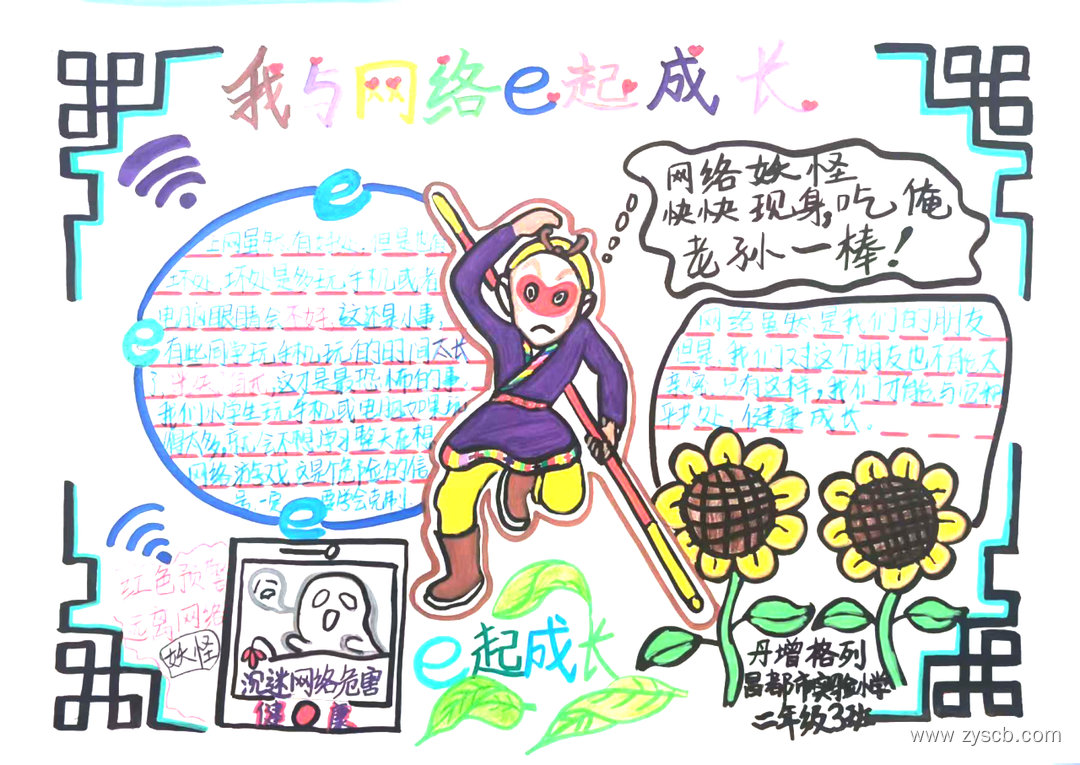 我与网络e起成长
网络妖怪
快快现身,吃俺
老孙一棒!
上网虽然有好处,但是也有
坏处,坏处是多玩手机或者
电脑眼睛会不好,这还是小事,
有些同学玩手机玩的时间太长
这才是最恐怖的事,
我们小学生玩手机或电脑如果玩
得太多,就会不想学习整天在想
网络游戏这是危险的信
号,一定 要学会克制。
网络虽然是我们的朋友
但是,我们对这个朋友也不能太
亲密,只有这样,我们才能与它和
平共处,健康成长。
红色预警
远离网络
妖怪
沉迷网络危害
健康
e起成长
丹增格列
昌都市实验小学
二年级3班
www.zyscb.com